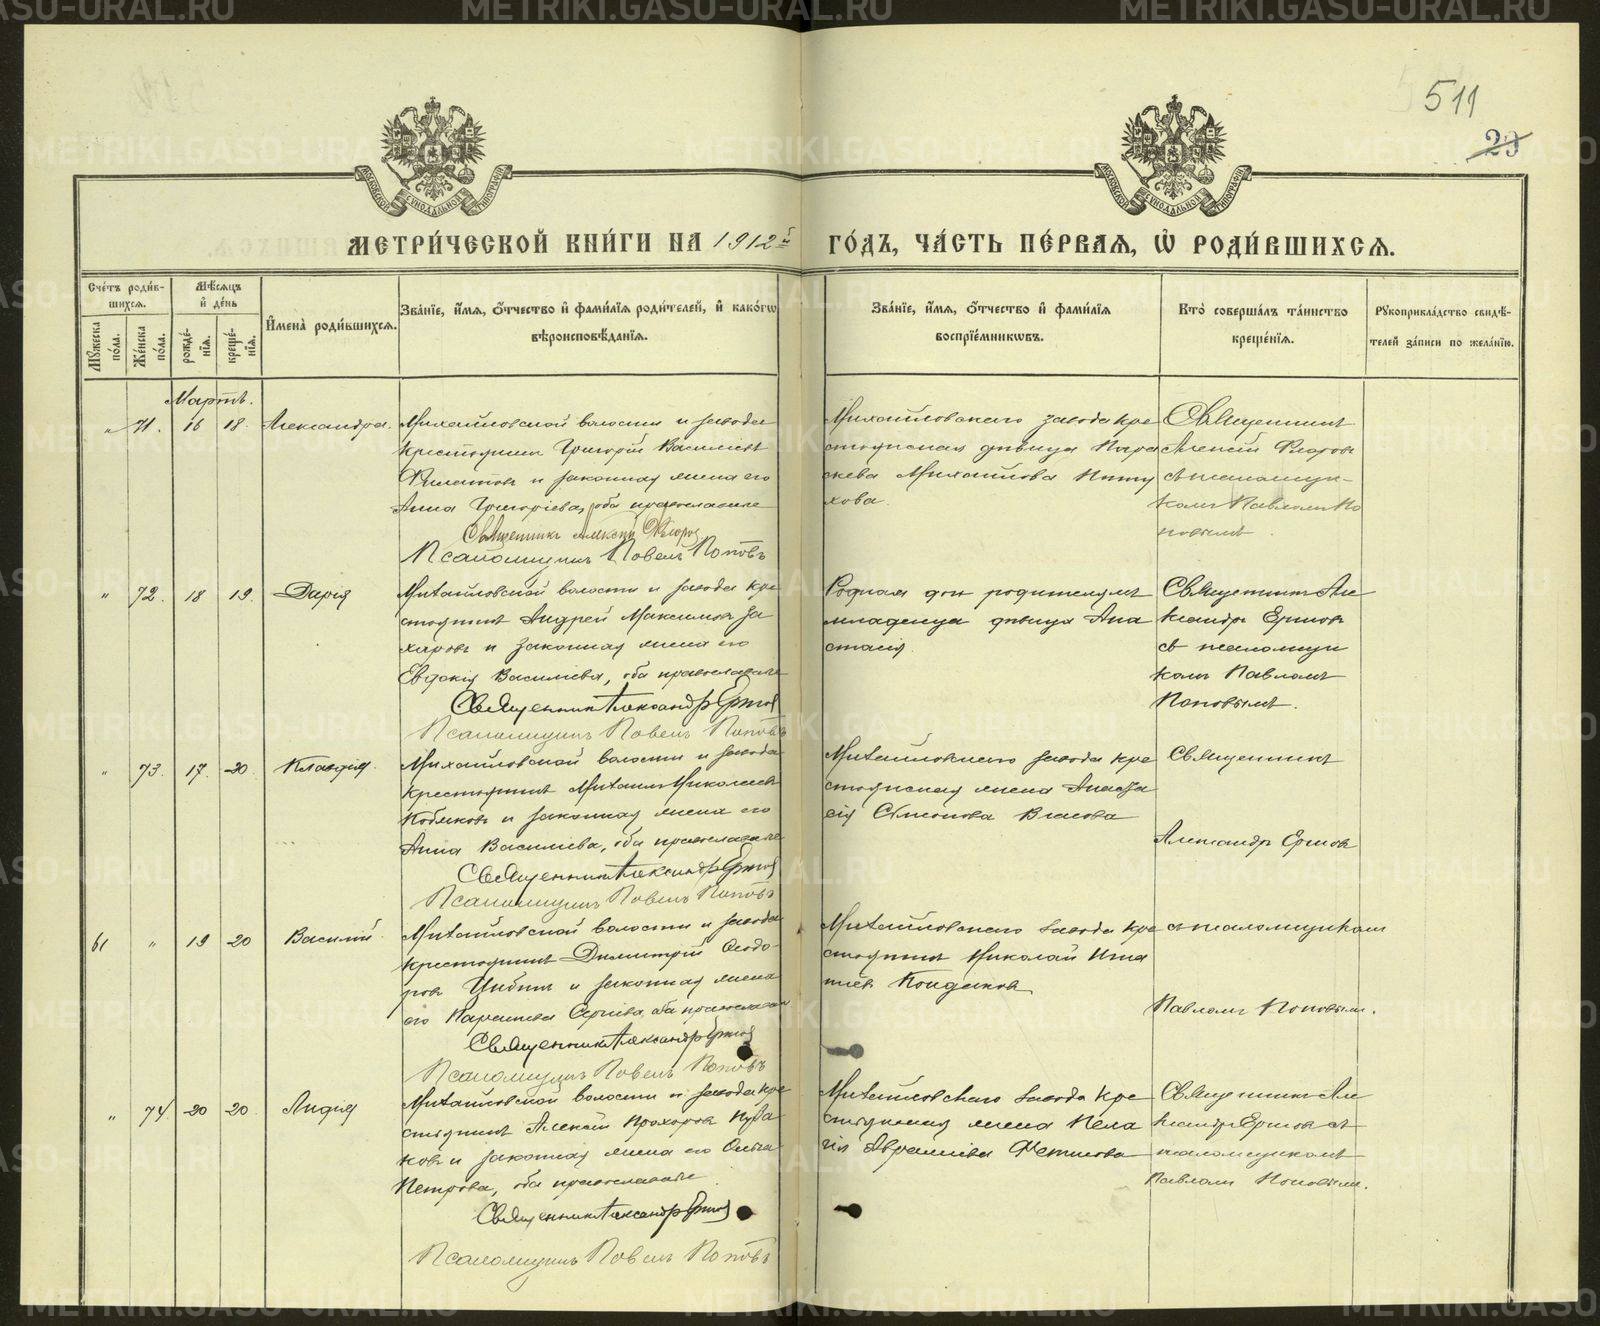 METRIKI.GASO-URAL.RU
511
23
МЕТРИ́ЧЕСКОЙ КНИ́ГИ НА 1912й
ГО́ДЪ, ЧА́СТЬ ПЕ́РВАЯ, Ѽ РОДИ́ВШИХСѦ.
Сче́тъ роди́в-
шихсѧ.
Мꙋ́жеска по́ла.
Же́нска по́ла.
Мѣ́сѧцъ
и҆ де́нь
рожде́-
нїѧ.
креще́-
нїѧ.
И҆мена̀ роди́вшихсѧ.
Зва́нїе, и҆́мѧ, ѻ҆́тчество и҆ фами́лїѧ роди́телей, и҆ како́гѡ
вѣроисповѣ́данїѧ.
Зва́нїе, и҆́мѧ, ѻ҆́тчество и҆ фами́лїѧ
воспрїе́мникѡвъ.
Кто̀ соверша́лъ та́инство
креще́нїѧ.
Рꙋкоприкла́дство свидѣ́-
телей за́писи по жела́нїю.
Мартъ.
" 71. 16 18. Александра.
Михайловской волости и завода
крестьянинъ Григорій Васильевъ
Филатовъ и законная жена его
Анна Григоріева, оба православные
Священникъ Алексій Флоровъ
Псаломщикъ Павелъ Поповъ
Михайловскаго завода кре
стьянская дѣвица Пара
скева Михайлова
хова.
Священникъ
Алексій Флоровъ
съ псаломщи-
комъ Павломъ По
повымъ.
" 72. 18 19. Дарія
Михайловской волости и завода кре
стьянинъ Андрей Максимовъ За
харовъ и законная жена его
Евдокія Васильева, оба православные
Священникъ Александръ Ершовъ
Псаломщикъ Павелъ Поповъ
Родная дочь родителямъ
младенца дѣвица Ана
стасія.
Священникъ Але
ксандръ Ершовъ
съ псаломщи
комъ Павломъ
Поповымъ.
" 73. 17. 20. Клавдія.
Михайловской волости и завода
крестьянинъ Михаилъ Николаевъ
и законная жена его
Анна Васильева, оба православные
Священникъ Александръ Ершовъ
Псаломщикъ Павелъ Поповъ
Михайловскаго завода кре
стьянская жена Анаста
сія Симонова Власова
Священникъ
Александръ Ершовъ
61 " 19 20 Василій.
Михайловской волости и завода
крестьянинъ Димитрій Ѳеодо-
ровъ и законная жена
его Параскева Сергіева, оба православные
Священникъ Александръ Ершовъ
Псаломщикъ Павелъ Поповъ
Михайловскаго завода кре
стьянинъ Николай Игна
тіевъ Кондаковъ
съ псаломщикомъ
Павломъ Поповымъ.
" 74 20 20. Лидія
Михайловской волости и завода кре
стьянинъ Алексій Прохоровъ
ковъ и законная жена его Ольга
Петрова, оба православные.
Священникъ Александръ Ершовъ
Псаломщикъ Павелъ Поповъ
Михайловскаго завода кре
стьянская жена Пела
гія Авраміева Фетисова
Священникъ Але
ксандръ Ершовъ съ
псаломщикомъ
Павломъ Поповымъ.